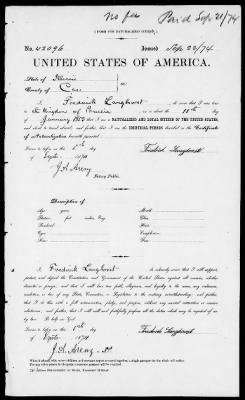 No fee Paid Sep. 21/74
[FORM FOR NATURALIZED CITIZEN.]
No. 42096 Issued Sep. 22/74
UNITED STATES OF AMERICA.
State of Illinois
County of Cass
I, Frederick Langhorst, do swear that I was born
in Kingdom of Prussia on or about the day
of January 1850 that I am a NATURALIZED AND LOYAL CITIZEN OF THE UNITED STATES,
and about to travel abroad; and further, that I am the IDENTICAL PERSON described in the Certificate
of Naturalization herewith presented.
Sworn to before me this
day
of Septr. 1874
J. A. Arenz
Notary Public.
Description of
Age: years. Mouth:
Stature: feet inches, Eng. Chin:
Forehead: Hair:
Eyes: Complexion:
Nose: Face:
I, Frederick Langhorst, do solemnly swear that I will support,
protect, and defend the Constitution and Government of the United States against all enemies, whether
domestic or foreign; and that I will bear true faith, allegiance, and loyalty to the same, any ordinance,
resolution, or law of any State, Convention, or Legislature to the contrary notwithstanding; and further,
that I do this with a full determination, pledge, and purpose, without any mental reservation or evasion
whatsoever; and further, that I will well and faithfully perform all the duties which may be required of me
by law. So help me God.
Sworn to before me this
day
of Septr. 1874
J. A. Arenz